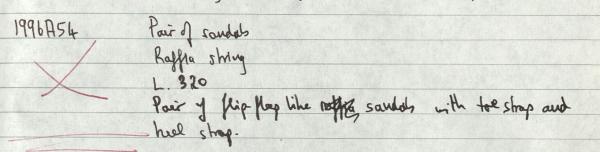 1996A54 Pair of sandals
Raffia string
L. 320
Pair of flip-flop like sandals with toe strap and
heel strap.